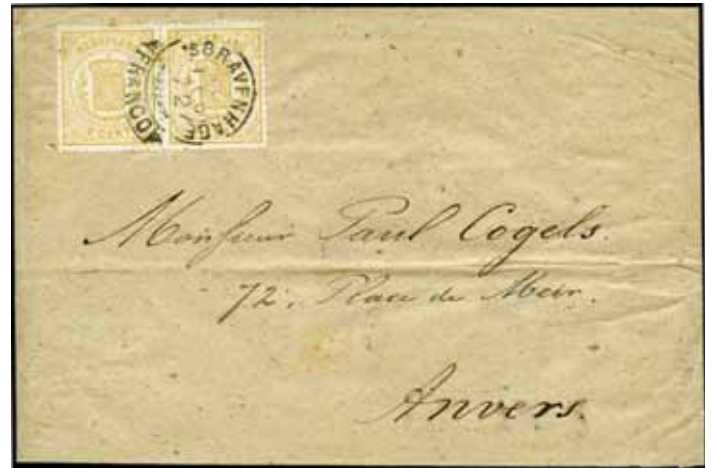 SGRAVENHAGE
FRANCO
Monsieur Paul Cogels.
72, Place de Meir.
Anvers.